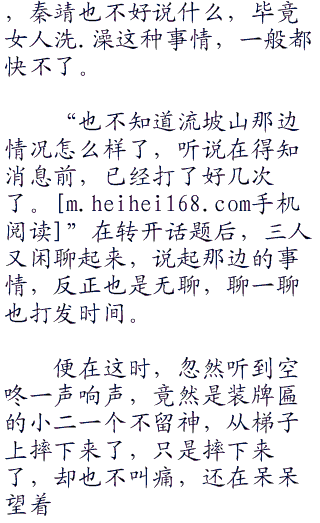 ，秦靖也不好说什么，毕竟
女人洗.澡这种事情，一般都
快不了。
“也不知道流坡山那边
情况怎么样了，听说在得知
消息前，已经打了好几次
了。[m.heihei168.com手机
阅读]”在转开话题后，三人
又闲聊起来，说起那边的事
情，反正也是无聊，聊一聊
也打发时间。
便在这时，忽然听到空
咚一声响声，竟然是装牌匾
的小二一个不留神，从梯子
上摔下来了，只是摔下来
了，却也不叫痛，还在呆呆
望着